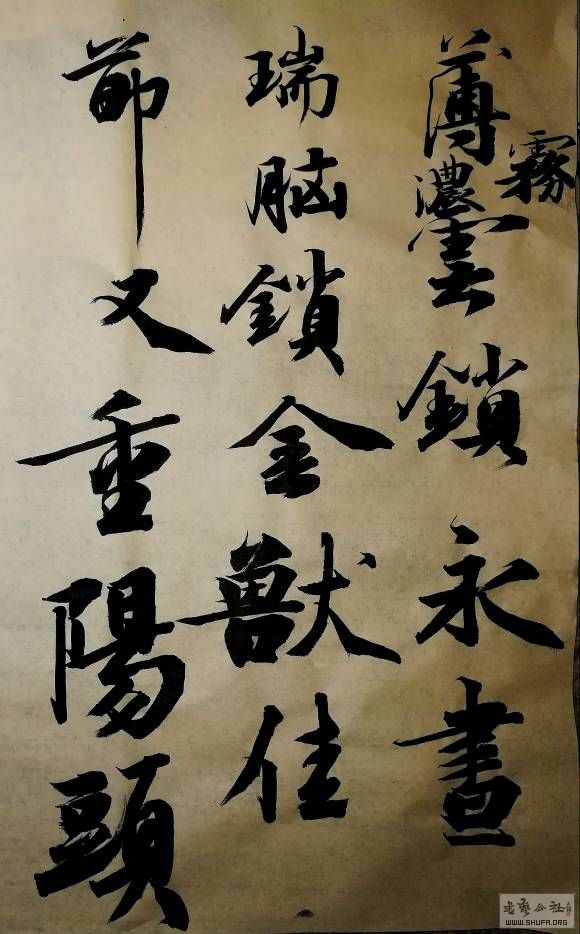 薄霧濃雲鎖永晝
瑞脑鎖金獸佳
節又重陽頭
書藝公社
WWW.SHUFA.ORG